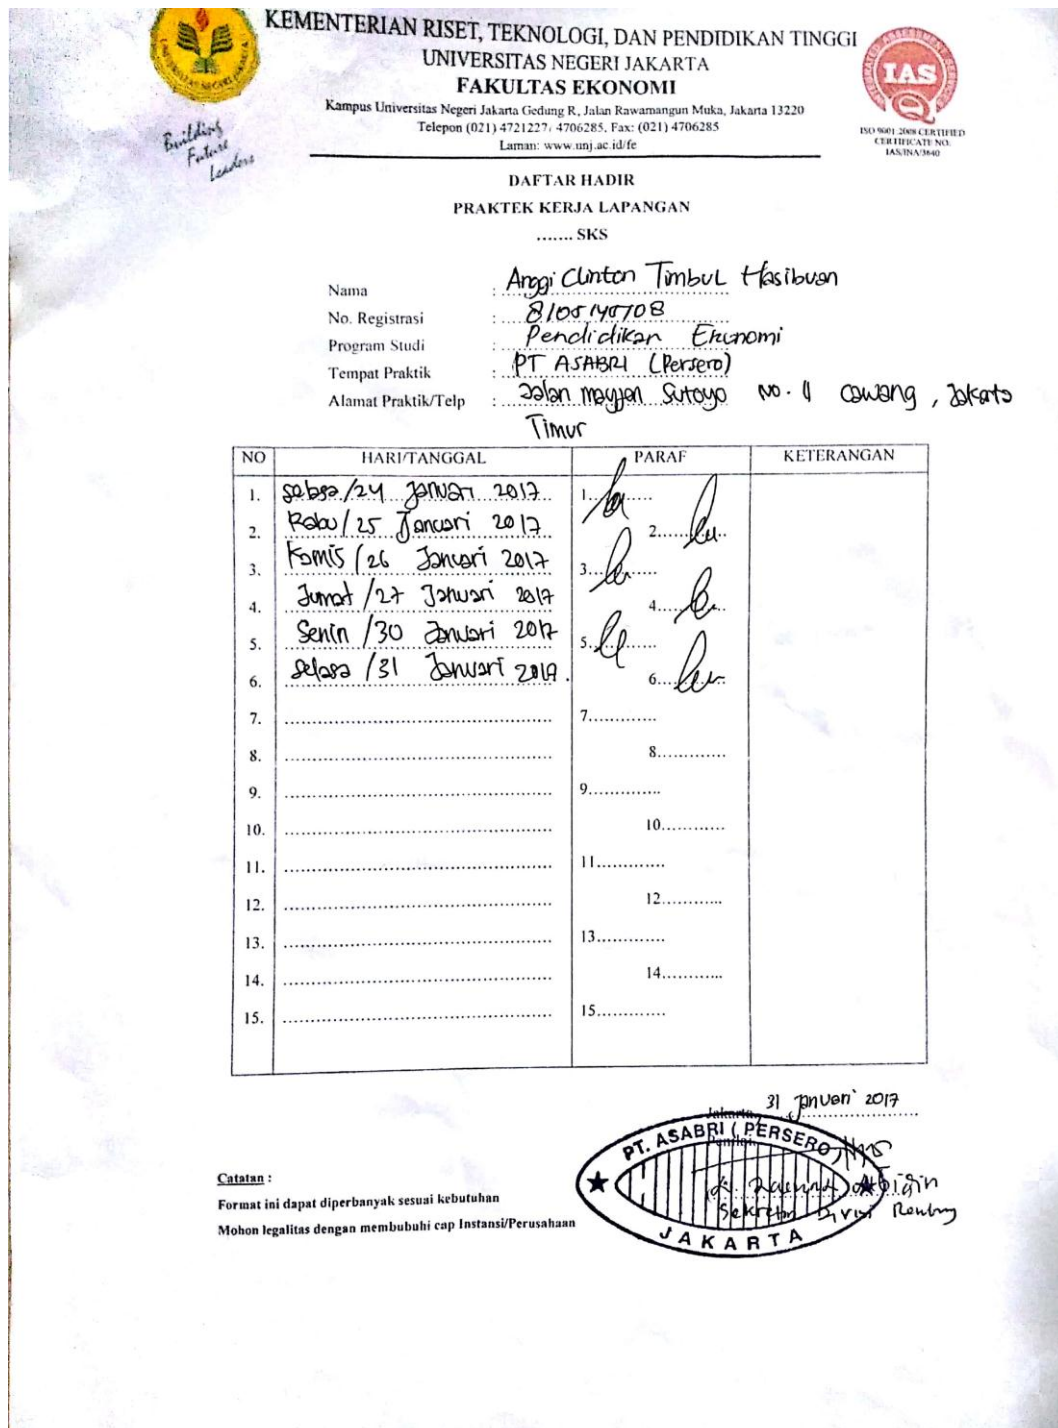 KEMENTERIAN RISET, TEKNOLOGI, DAN PENDIDIKAN TINGGI
UNIVERSITAS NEGERI JAKARTA
FAKULTAS EKONOMI
Kampus Universitas Negeri Jakarta Gedung R, Jalan Rawamangun Muka, Jakarta 13220
Telepon (021) 4721227, 4706285, Fax: (021) 4706285
Laman: www.unj.ac.id/fe
Building
Future
Leaders
IAS
ISO 9001:2008 CERTIFIED
CERTIFICATE NO.
IAS/INA/3640
DAFTAR HADIR
PRAKTEK KERJA LAPANGAN
....... SKS
Nama : Anggi Clinton Timbul Hasibuan
No. Registrasi : 8105145708
Program Studi : Pendidikan Ekonomi
Tempat Praktik : PT ASABRI (Persero)
Alamat Praktik/Telp : Jalan Mayjen Sutoyo No. 11 Cawang, Jakarta
Timur
NO HARI/TANGGAL PARAF KETERANGAN
1. Selasa/24 Januari 2017 1.
2. Rabu/25 Januari 2017 2.
3. Kamis/26 Januari 2017 3.
4. Jumat/27 Januari 2017 4.
5. Senin/30 Januari 2017 5.
6. Selasa/31 Januari 2017. 6.
7. 7.
8. 8.
9. 9.
10. 10.
11. 11.
12. 12.
13. 13.
14. 14.
15. 15.
Jakarta, 31 Januari 2017
Penilai,
PT. ASABRI (PERSERO)
JAKARTA
Divisi
Catatan :
Format ini dapat diperbanyak sesuai kebutuhan
Mohon legalitas dengan membubuhi cap Instansi/Perusahaan